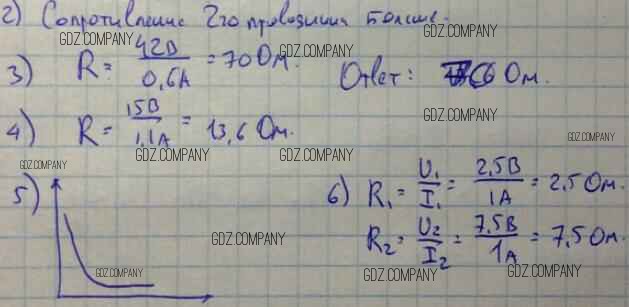 2) Сопротивление 2го проводника больше.
3) R = 42В / 0,6А = 70 Ом. Ответ: Ом.
4) R = 15В / 1,1А = 13,6 Ом.
5)
6) R₁ = U₁ / I₁ = 2,5В / 1А = 2,5 Ом.
R₂ = U₂ / I₂ = 7,5В / 1А = 7,5 Ом.
GDZ.COMPANY
GDZ.COMPANY
GDZ.COMPANY
GDZ.COMPANY
GDZ.COMPANY
GDZ.COMPANY
GDZ.COMPANY
GDZ.COMPANY
GDZ.COMPANY
GDZ.COMPANY
GDZ.COMPANY
GDZ.COMPANY
GDZ.COMPANY